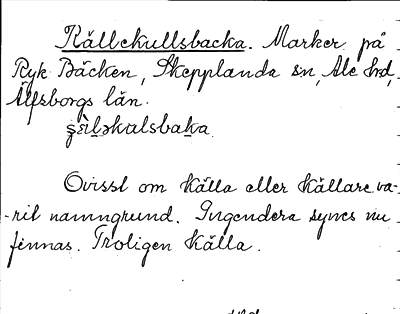 Källekullsbacka. Marker på
Ryk Bäcken, Skepplanda sn, Ale hd,
Älfsborgs län.
Ovisst om Källa eller Källare va-
-rit namngrund. Ingendera synes nu
finnas. Troligen Källa.